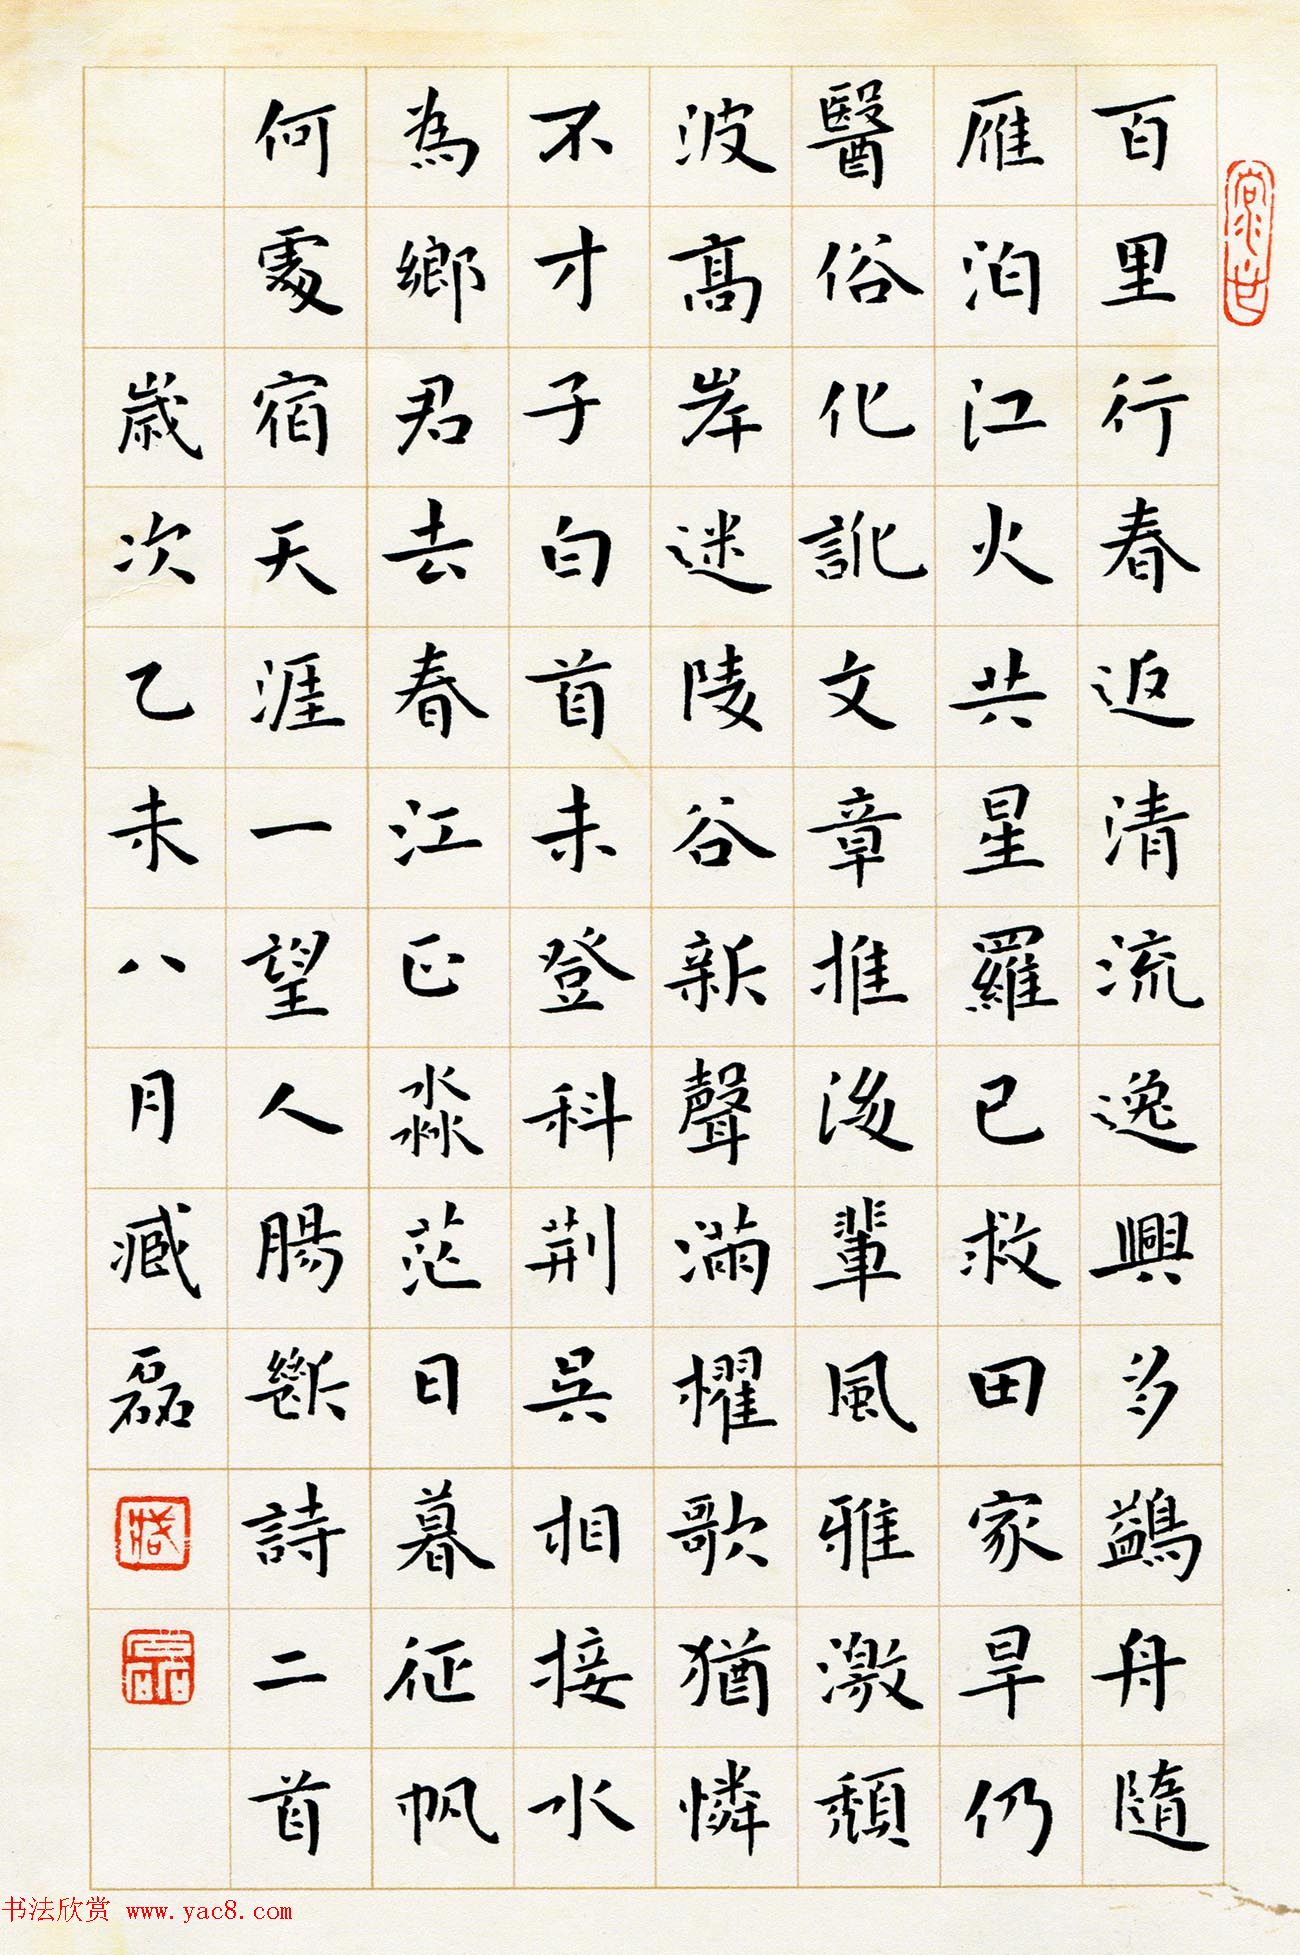 百里行春返清流逸興多鷁舟隨
雁泊江火共星羅已救田家旱仍
醫俗化訛文章推後輩風雅激頹
波高岸迷陵谷新聲滿櫂歌猶憐
不才子白首未登科荆吳相接水
為鄉君去春江正淼茫日暮征帆
何處宿天涯一望人腸斷詩二首
歲次乙未八月臧磊
书法欣赏 www.yac8.com